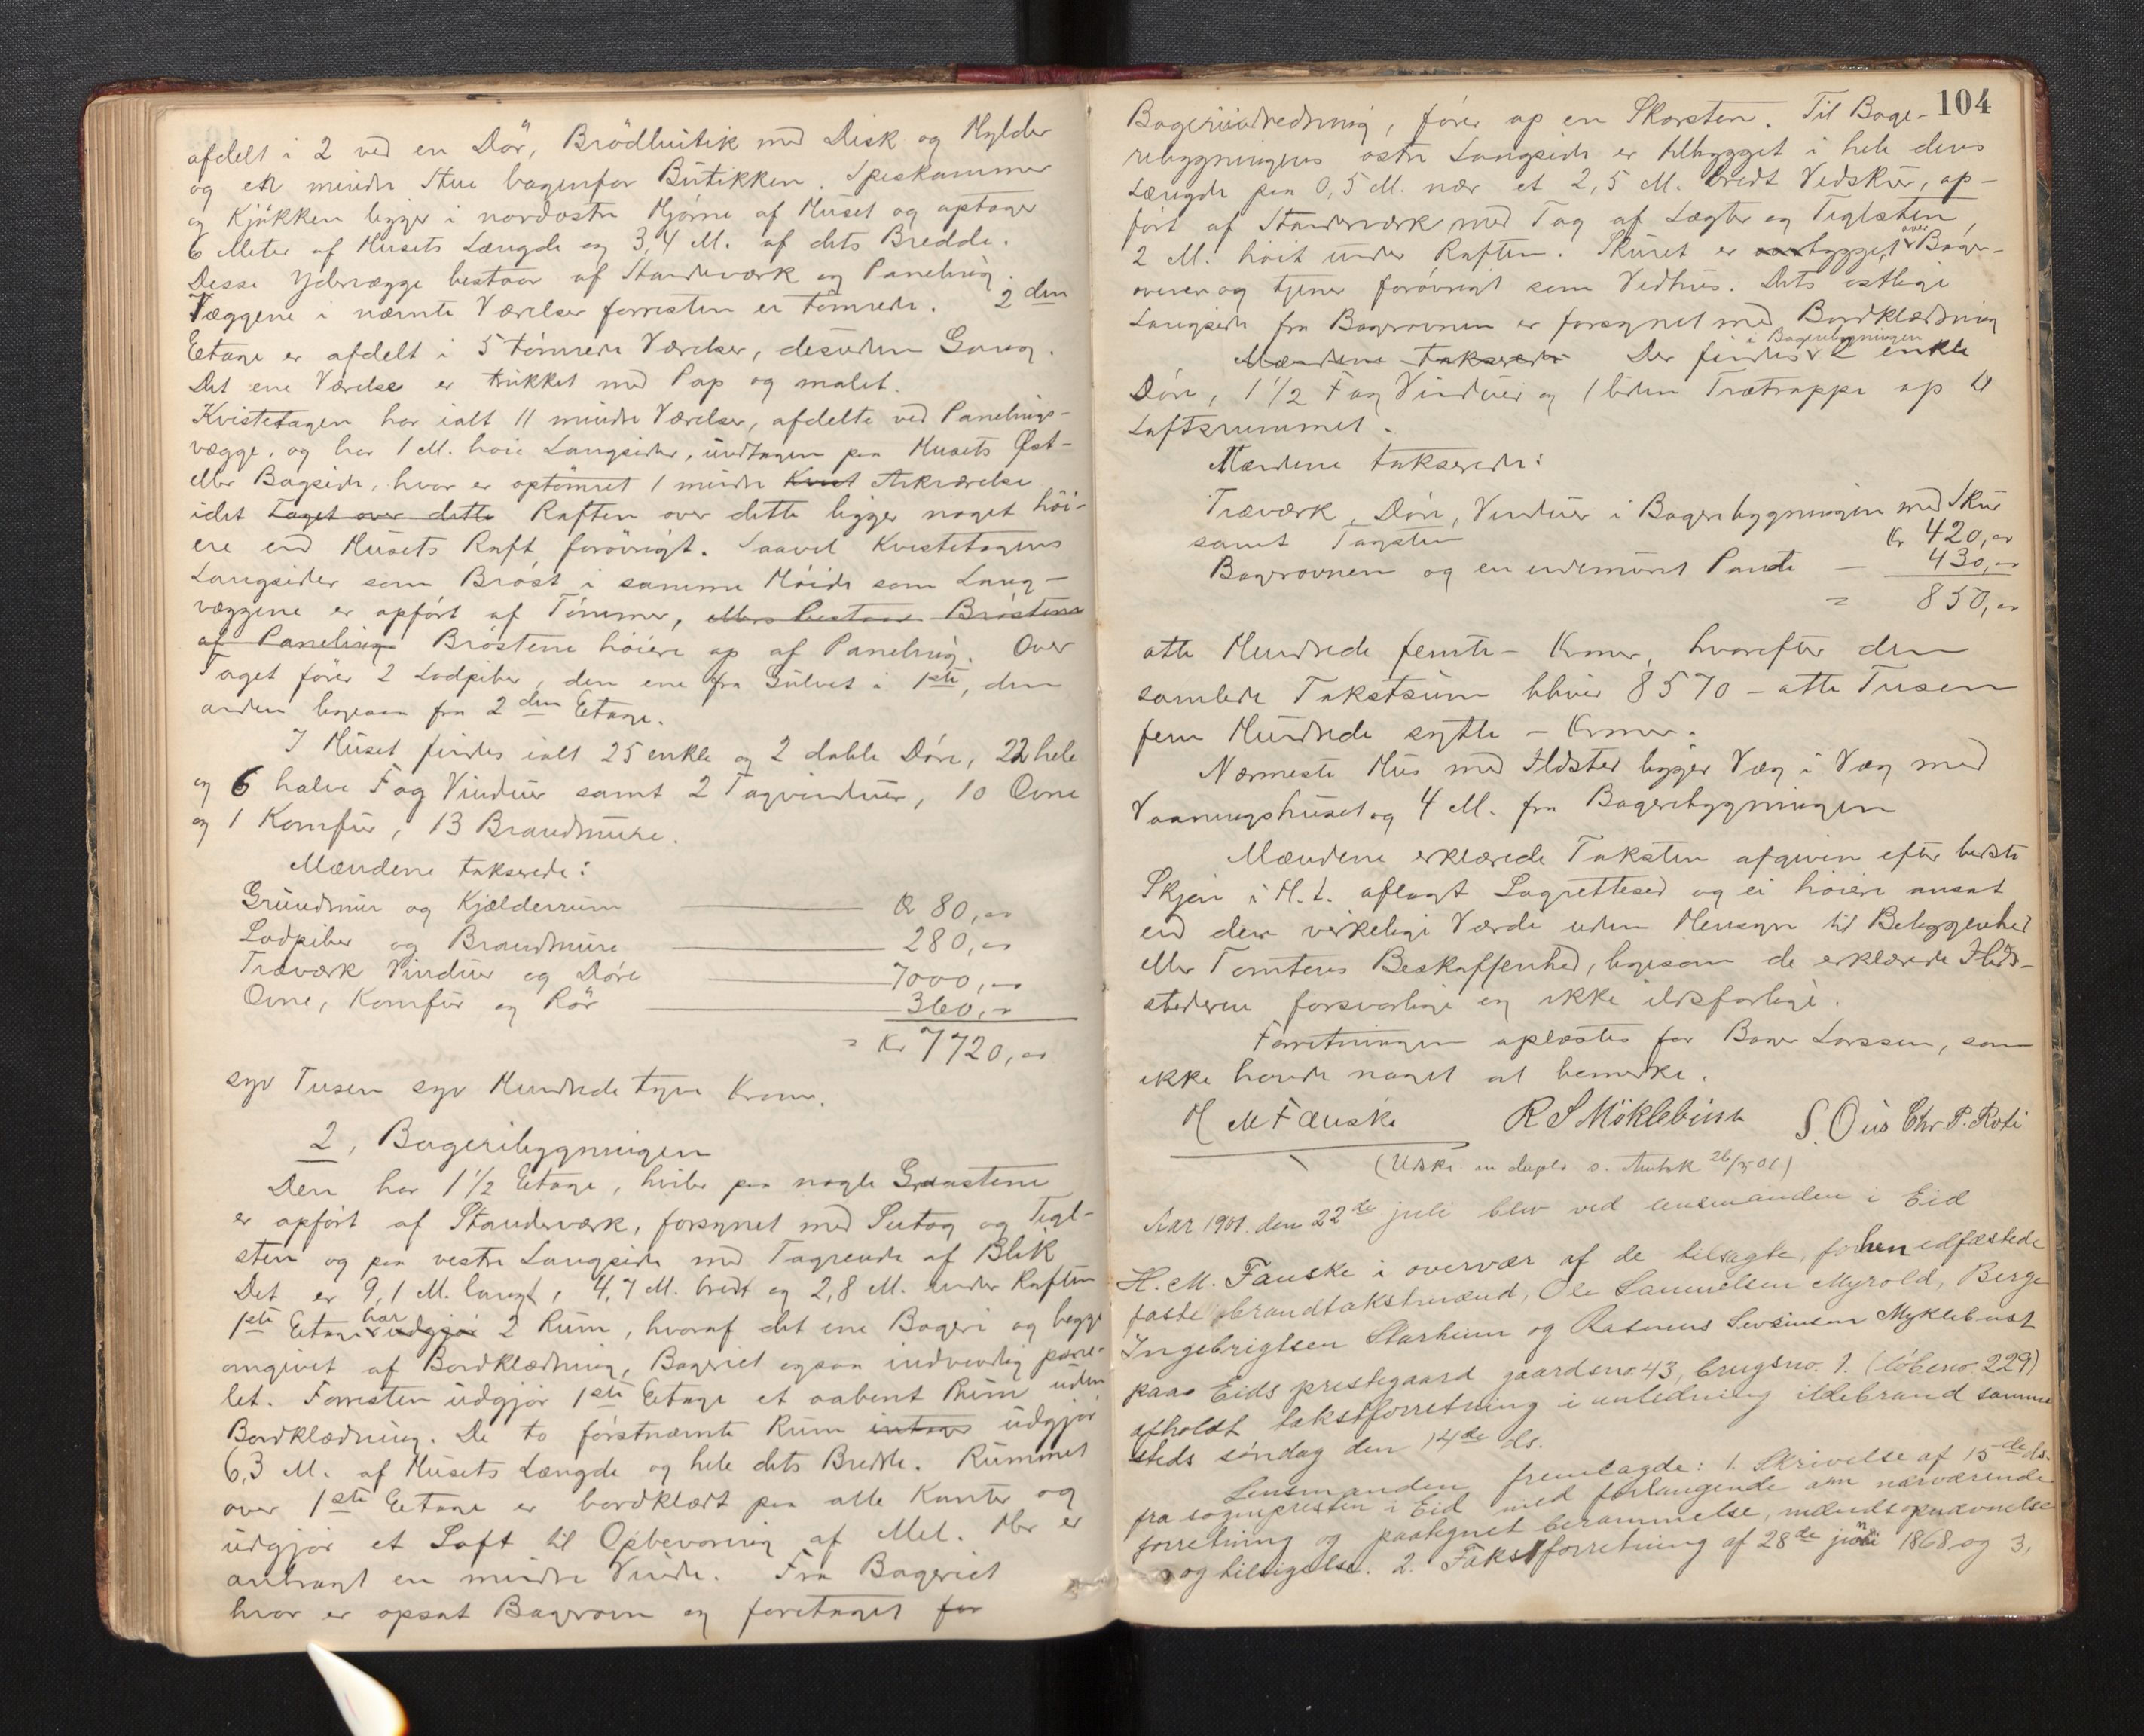 afdelt i 2 ved en Dör, Brödbutik med Disk og Hylder
og en mindre Stue bagenfor Butikken. Spiskammer
og Kjökken ligger i nordostre Hjörne af Huset og optager
6 Meter af Husets Længde og 3,4 M. af dets Bredde.
Desse Ydervægge bestaar af Standeværk og Paneling.
Væggene i nævnte Værelser forresten er tömrede. 2den
Etage er afdelt i 5 tömrede Værelser, desuden Gang.
Det ene Værelse er trukket med Pap og malet.
Kvistetagen har ialt 11 mindre Værelser, afdelte ved Panelings-
vægge, og har 1 M. høie Langsider, undtagen paa Husets Øst-
eller Bagside, hvor er optömret 1 mindre Kvist Arkværelse
idet Taget over dette Raften over dette ligger noget höi-
ere end Husets Raft forövrigt. Saavel Kvistetagens
Langsider som Bröst i samme Höide som Lang-
væggene er opfört af Tömmer, ellers bestaar Bröstene
af Paneling Bröstene höiere op af Paneling. Over
Taget förer 2 Lodpiber, den ene fra Gulvet i 1ste, den
anden ligesaa fra 2den Etage.
I Huset findes ialt 25 enkle og 2 doble Döre, 22 hele
og 6 halve Fag Vinduer samt 2 Tagvinduer, 10 Ovne
og 1 Komfur, 13 Brandmure.
Mændene takserede:
Grundmur og Kjælderrum Kr 80,00
Lodpiber og Brandmure 280,00
Træværk Vinduer og Döre 7000,00
Ovne, Komfur og Rör 360,00
= Kr 7720,00
syv Tusen syv Hundrede tyve Kroner.
2, Bageribygningen
Den har 1 1/2 Etage, hviler paa nogle Graastene
er opfört af Standeværk, forsynet med Sutag og Tegl-
sten og paa vestre Langside med Tagrende af Blik
Det er 9,1 M. langt, 4,7 M. bredt og 2,8 M. under Raften
1ste Etage har udgjör 2 Rum, hvoraf det ene Bageri og begge
omgivet af Bordklædning, Bageriet ogsaa indvendig pane-
let. Forresten udgjör 1ste Etage et aabent Rum uden
Bordklædning. De to förstnævnte Rum udgjör
6,3 M. af Husets Længde og hele dets Bredde. Rummet
over 1ste Etage er bordklædt paa alle Kanter og
udgjör et Loft til Opbevaring af Mel. Her er
anbragt en mindre Vinde. Fra Bageriet
hvor er opsat Bagerovn og foretaget for
104
Bageriindredning, förer op en Skorsten. Til Bage-
ribygningens østre Langside er tilbygget i hele dens
Længde paa 0,5 M. nær et 2,5 M. bredt Vedskur, op-
fört af Standeværk med Tag af Lægter og Teglsten,
2 M. höit under Raften. Skuret er bygget over Bager-
ovnen og tjener forövrigt som Vedhus. Dets østlige
Langside fra Bagerovnen er forsynet med Bordklædning
Mændene takserede Der findes i Bageribygningen 2 enkle
Döre, 1 1/2 Fag Vinduer og 1 liden Trætrappe op til
Loftsrummet.
Mændene takserede:
Træværk, Döre, Vinduer i Bageribygningen med Skur
samt Tagsten Kr 420,00
Bagerovnen og en indemuret Pande — 430,00
= 850,00
otte Hundrede femti – Kroner, hvorefter den
samlede Takstsum bliver 8570 – otte Tusen
fem Hundrede sytti – Kroner.
Nærmeste Hus med Ildsted ligger Væg i Væg med
Vaaningshuset og 4 M. fra Bageribygningen
Mændene erklærede Taksten afgiven efter bedste
Skjön i H. t. aflagt Lagrettesed og ei höiere ansat
end den virkelige Værdi uden Hensyn til Beliggenhed
eller Tomtens Beskaffenhed, ligesom de erklærede Ild-
stederne forsvarlige og ikke ildsfarlige.
Forretningen oplæstes for Bager Larssen, som
ikke havde noget at bemerke.
H M Fauske R S Möklebust S. Ous Chr. P. Roti
(Udskr. in duplo s. 26/5 01)
Aar 1901 den 22de juli blev ved lensmanden i Eid
H. M. Fauske i overvær af de tilsagte, forhen edfæstede
faste brandtakstmænd, Ole Samuelsen Myrold, Berge
Ingebrigtsen Starheim og Rasmus Sivsimsen Myklebust
paa Eids prestegaard gaardsno. 43, brugsno. 1. (löbeno. 229)
afholdt takstforretning i anledning ildebrand samme
steds söndag den 14de ds.
Lensmanden fremlagde: 1. Skrivelse af 15de ds.
fra sognepresten i Eid med forlangende om nærværende
forretning og paategnet berammelse, mændsopnævnelse
og tilsigelse. 2. Takstforretning af 28de juni 1868 og 3,